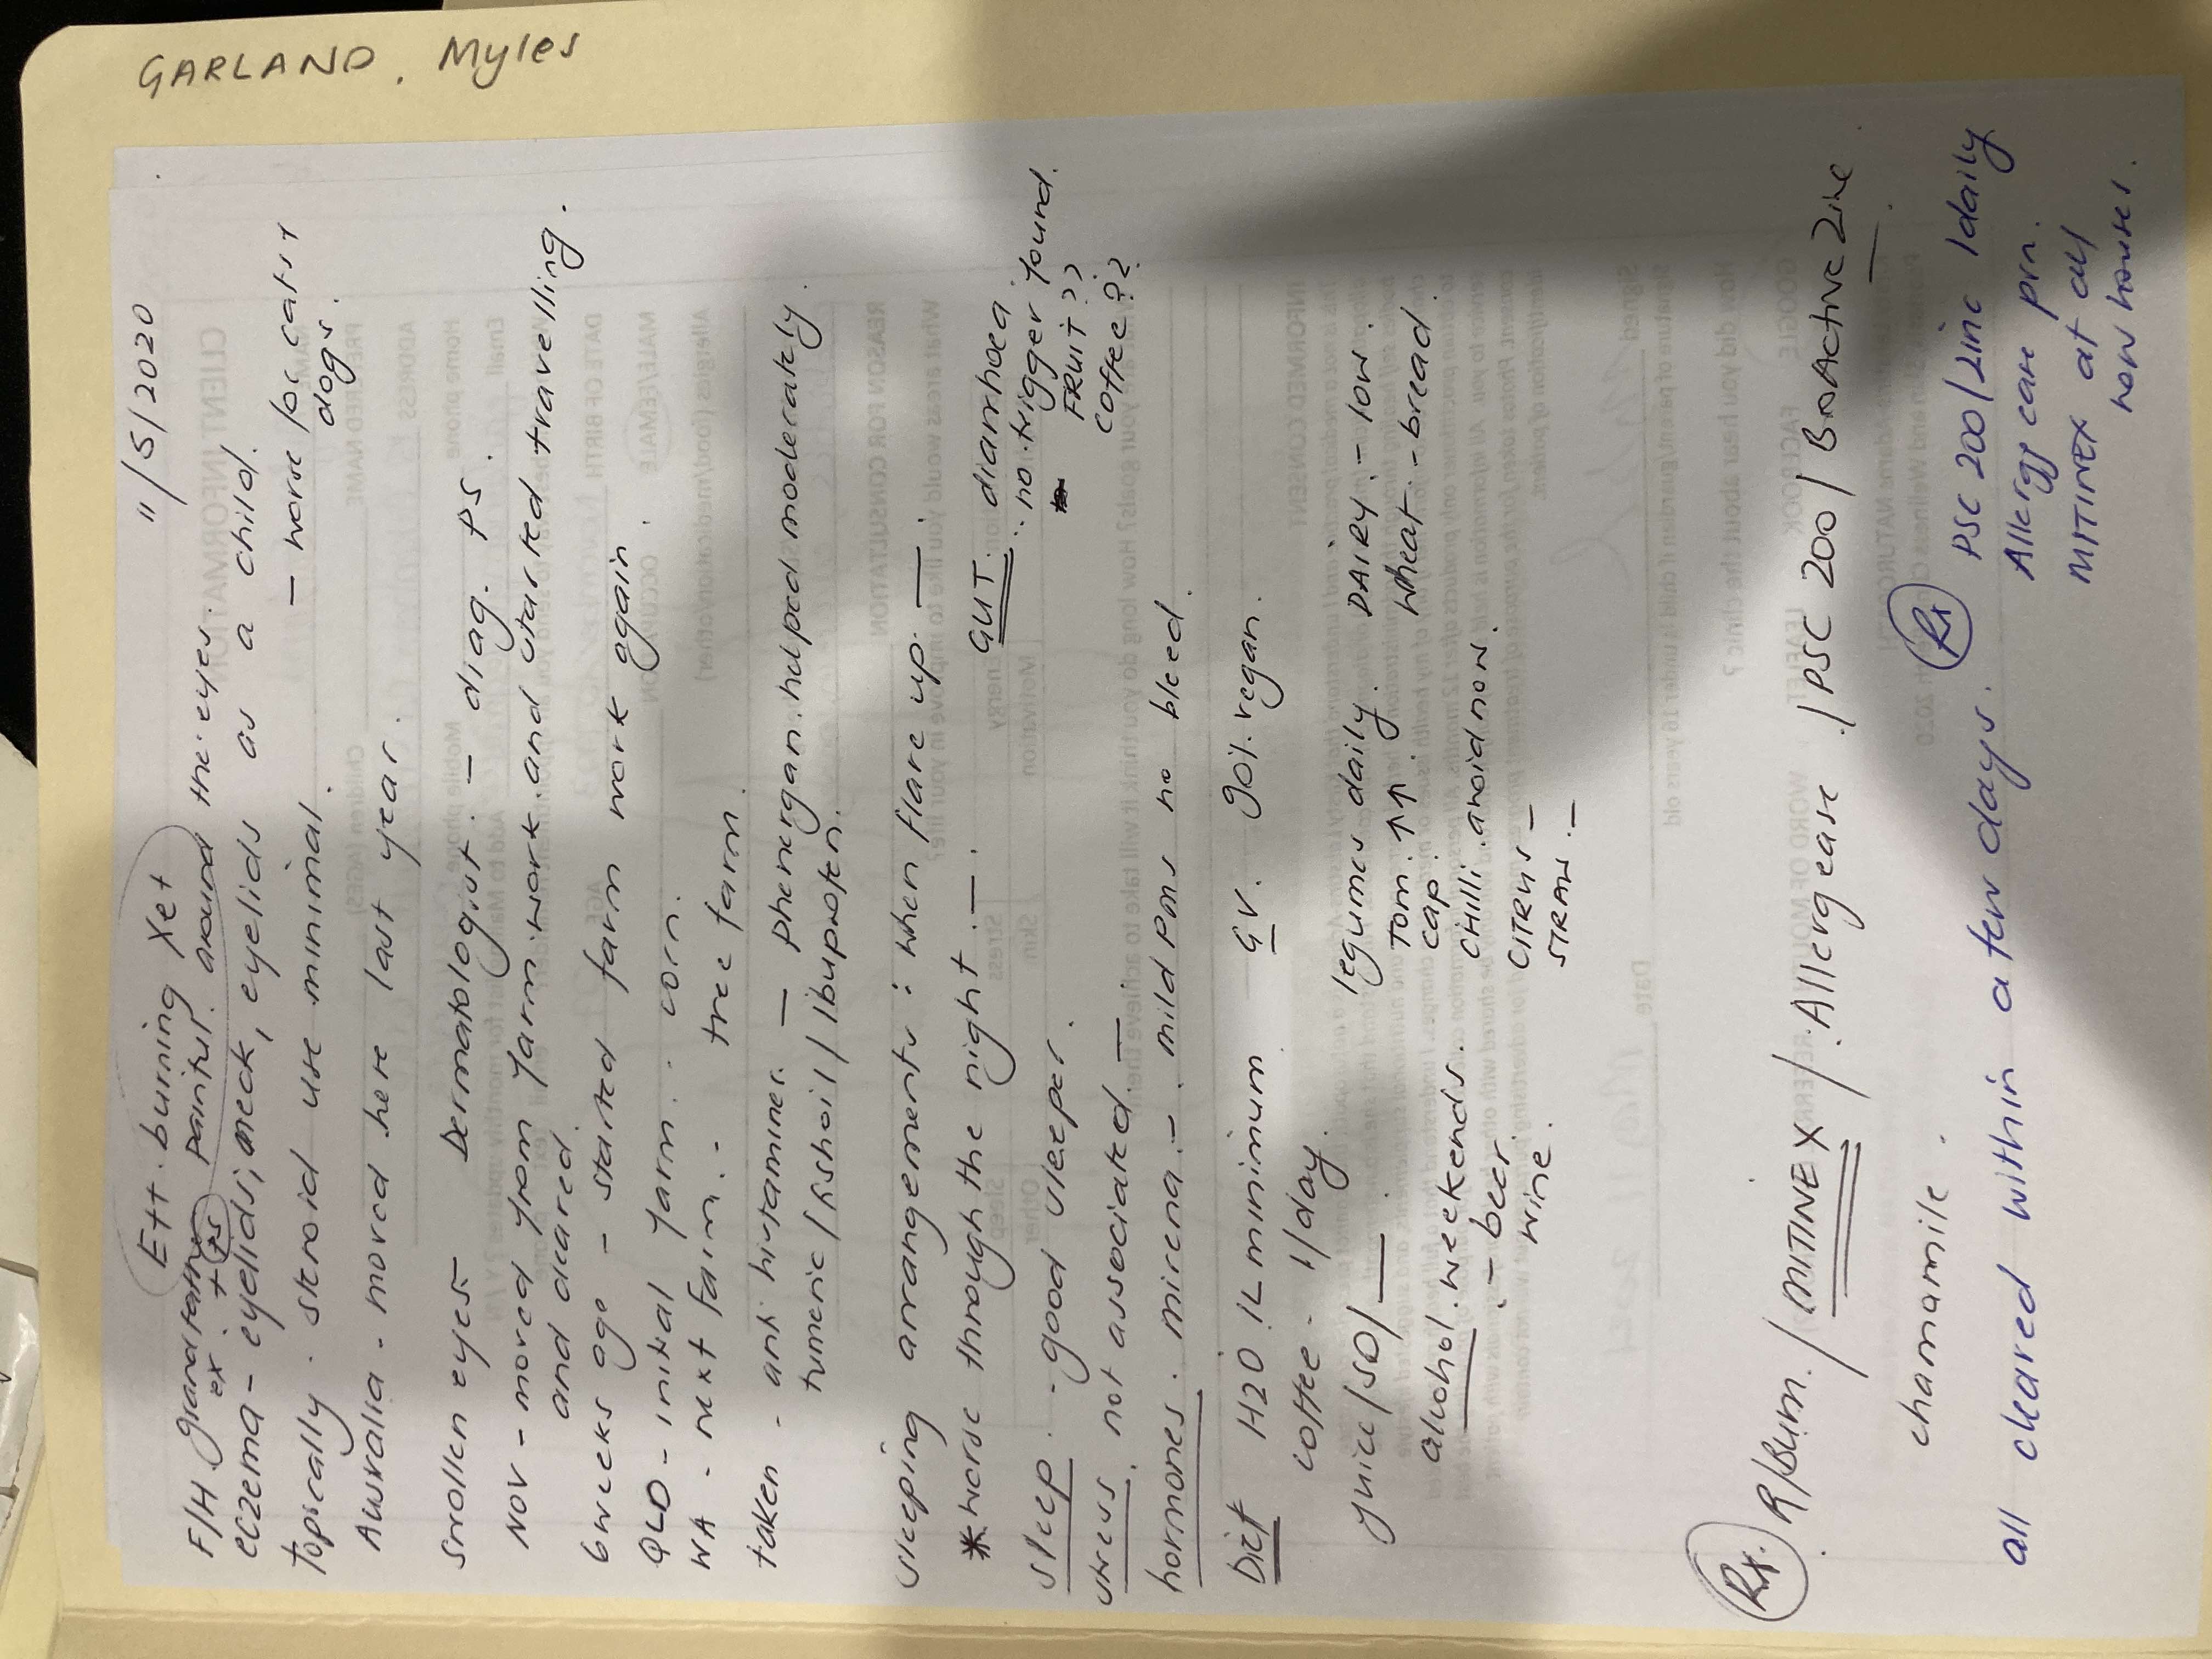 GARLAND, Myles
11/5/2020
Ett. burning Xet
F/H. grandfather painful. around the eyes.
ex + PS
eczema - eyelids, neck, eyelids as a child.
topically. steroid use minimal. - worse for cats + dogs.
Australia - moved here last year.
Swollen eyes - Dermatologist. - diag. PS.
NOV - moved from farm work and started travelling.
and cleared.
6 weeks ago - started farm work again.
QLD - initial farm. corn.
WA - next farm. - tree farm.
taken - anti histamines. - phenergan. helped moderately.
tumeric / fishoil / ibuprofen.
sleeping arrangements: when flare up. -
* worse through the night. -
GUT. diarrhoea.
no trigger found.
FRUIT??
coffee??
sleep. - good sleeper.
stress. not associated. -
hormones. mirena. - mild PMS no bleed.
Diet H2O 1L minimum GV. 90% vegan.
coffee - 1/day. legumes daily. DAIRY. - low.
juice / SD / - TOM. ↑↑. wheat. - bread.
cap.
alcohol. weekends. CHILLI. avoid now.
- beer. CITRUS -
wine. STRAW. -
Rx. R/Bum. / MITINEX /. Allergease. / PSC 200 / BioActive Zinc
chamamile.
all cleared within a few days.
Rx PSC 200 / Zinc 1 daily
Allergy care prn.
MITINEX at all
new houses.